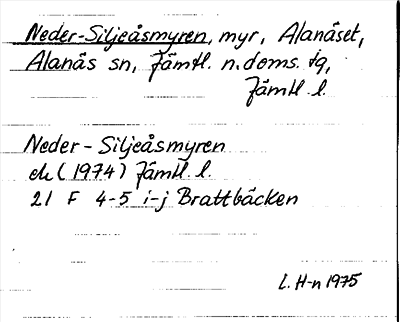 Neder-Siljeåsmyren, myr, Alanäset,
Alanäs sn, Jämtl. n. doms. tg,
Jämtl l.
Neder-Siljeåsmyren
ek (1974) Jämtl. l.
21 F 4-5 i-j Brattbäcken
L. H-n 1975